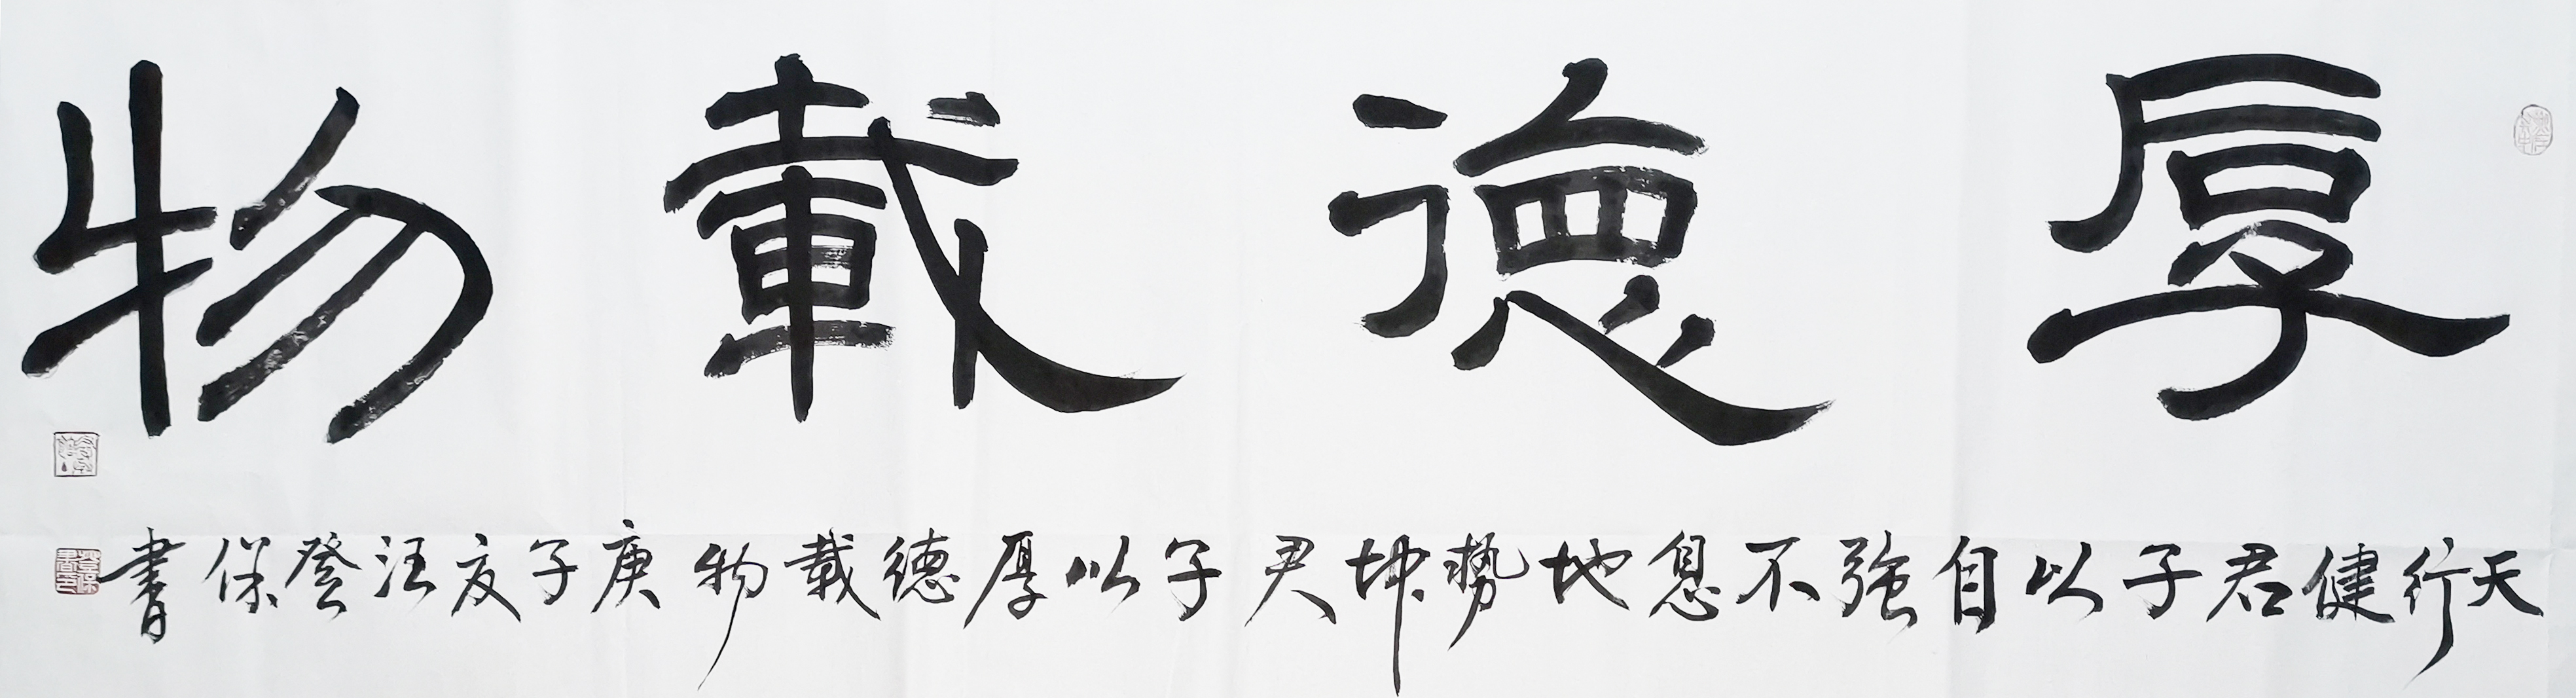 厚德載物
天行健君子以自強不息地勢坤君子以厚德載物庚子夏汪登保書